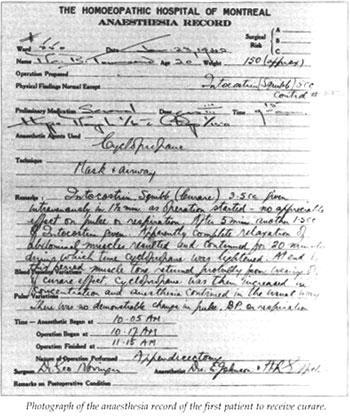 THE HOMOEOPATHIC HOSPITAL OF MONTREAL
ANAESTHESIA RECORD
Surgical Risk A B C
Ward Date 23 1942
Name Age 20 Weight 150 (approx)
Operation Proposed
Physical Findings Normal Except Intocostrin Squibb 5cc
Preliminary Medication Time
Anaesthetic Agents Used
Cyclopropane
Technique
Mask & airway
Remarks: Intocostrin Squibb (Curare) 3.5cc given
intravenously in 1/2 min. as operation started - no appreciable
effect on pulse or respiration. After 5 min another 1.5cc
of Intocostrin given. Apparently complete relaxation of
abdominal muscles resulted and continued for 20 minutes
during which time cyclopropane was lightened. At end of
this period muscle tone returned probably from wearing off
of curare effect. Cyclopropane was then increased in
concentration and anaesthesia continued in the usual way
Blood Pressure Variations
Pulse Variations
there was no demonstrable change in pulse, BP or respiration
Time—Anaesthetic Began at 10.05 AM
Operation Began at 10.17 AM
Operation Finished at 11.15 AM
Nature of Operation Performed Appendicectomy
Surgeon Dr Geo Novinger Anaesthetist Drs E Johnson & HRG
Remarks on Postoperative Condition
Photograph of the anaesthesia record of the first patient to receive curare.